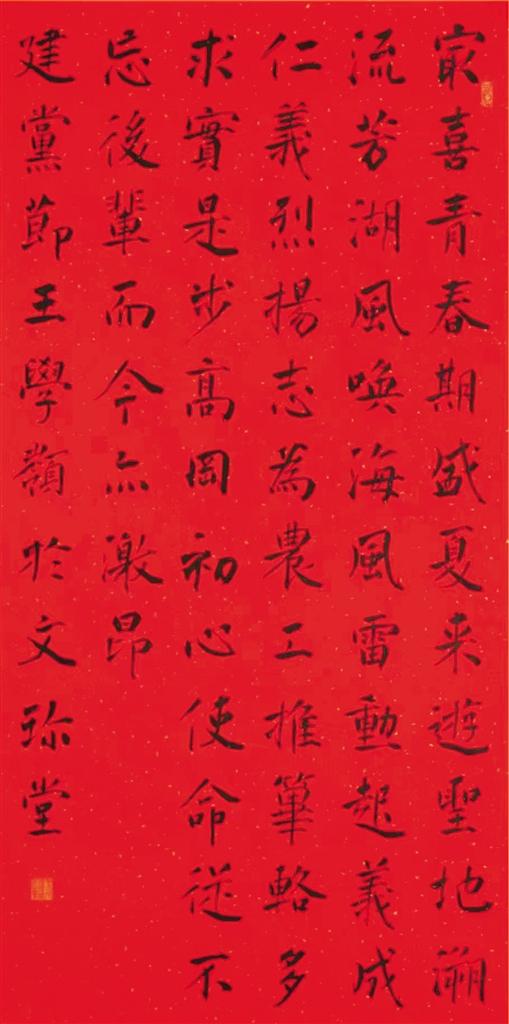 㝡喜青春期盛夏来遊聖地溯
流芳湖風喚海風雷動起義成
仁義烈揚志為農工推篳輅多
求實是步高岡初心使命從不
忘後輩而今亦激昂
建黨節王學嶺於文珎堂